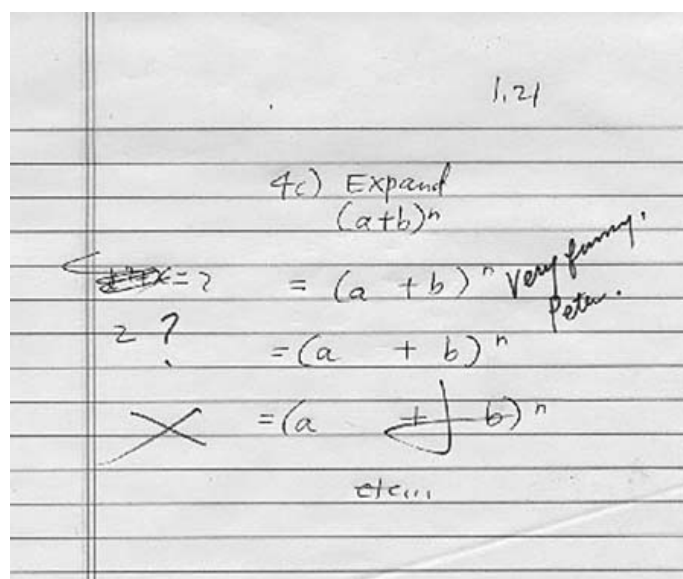 1,21
4c) Expand
(a+b)ⁿ
= (a + b)ⁿ
Very funny,
Peter.
2 ?
= (a + b)ⁿ
= (a + b)ⁿ
etc...